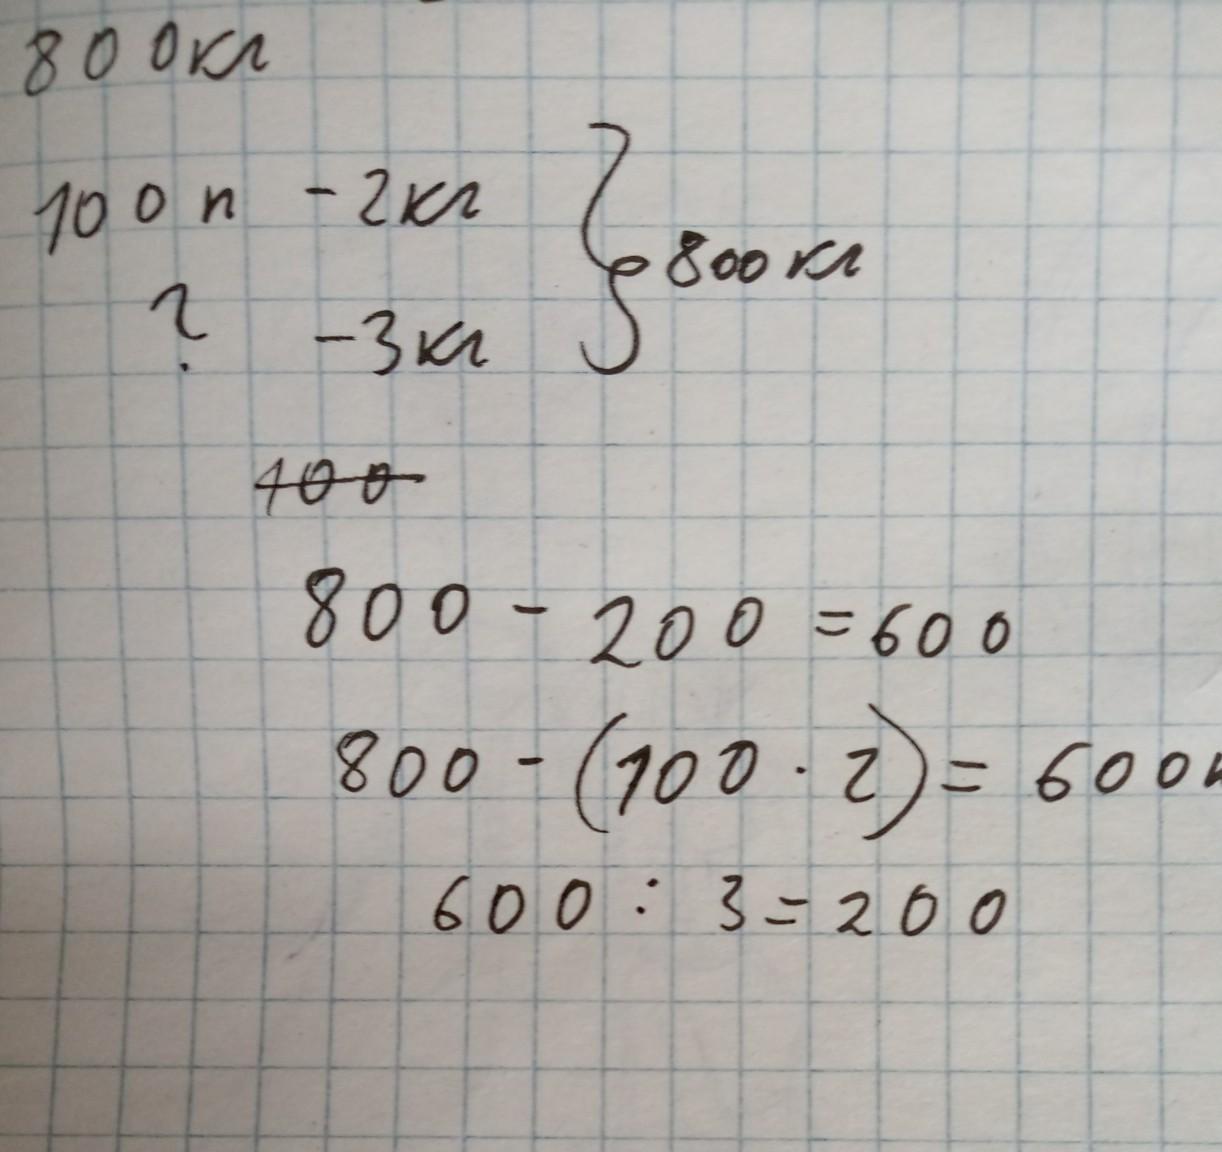 800кг
100 п - 2кг
800кг
? - 3кг
100
800 - 200 = 600
800 - (100 · 2) = 600
600 : 3 = 200